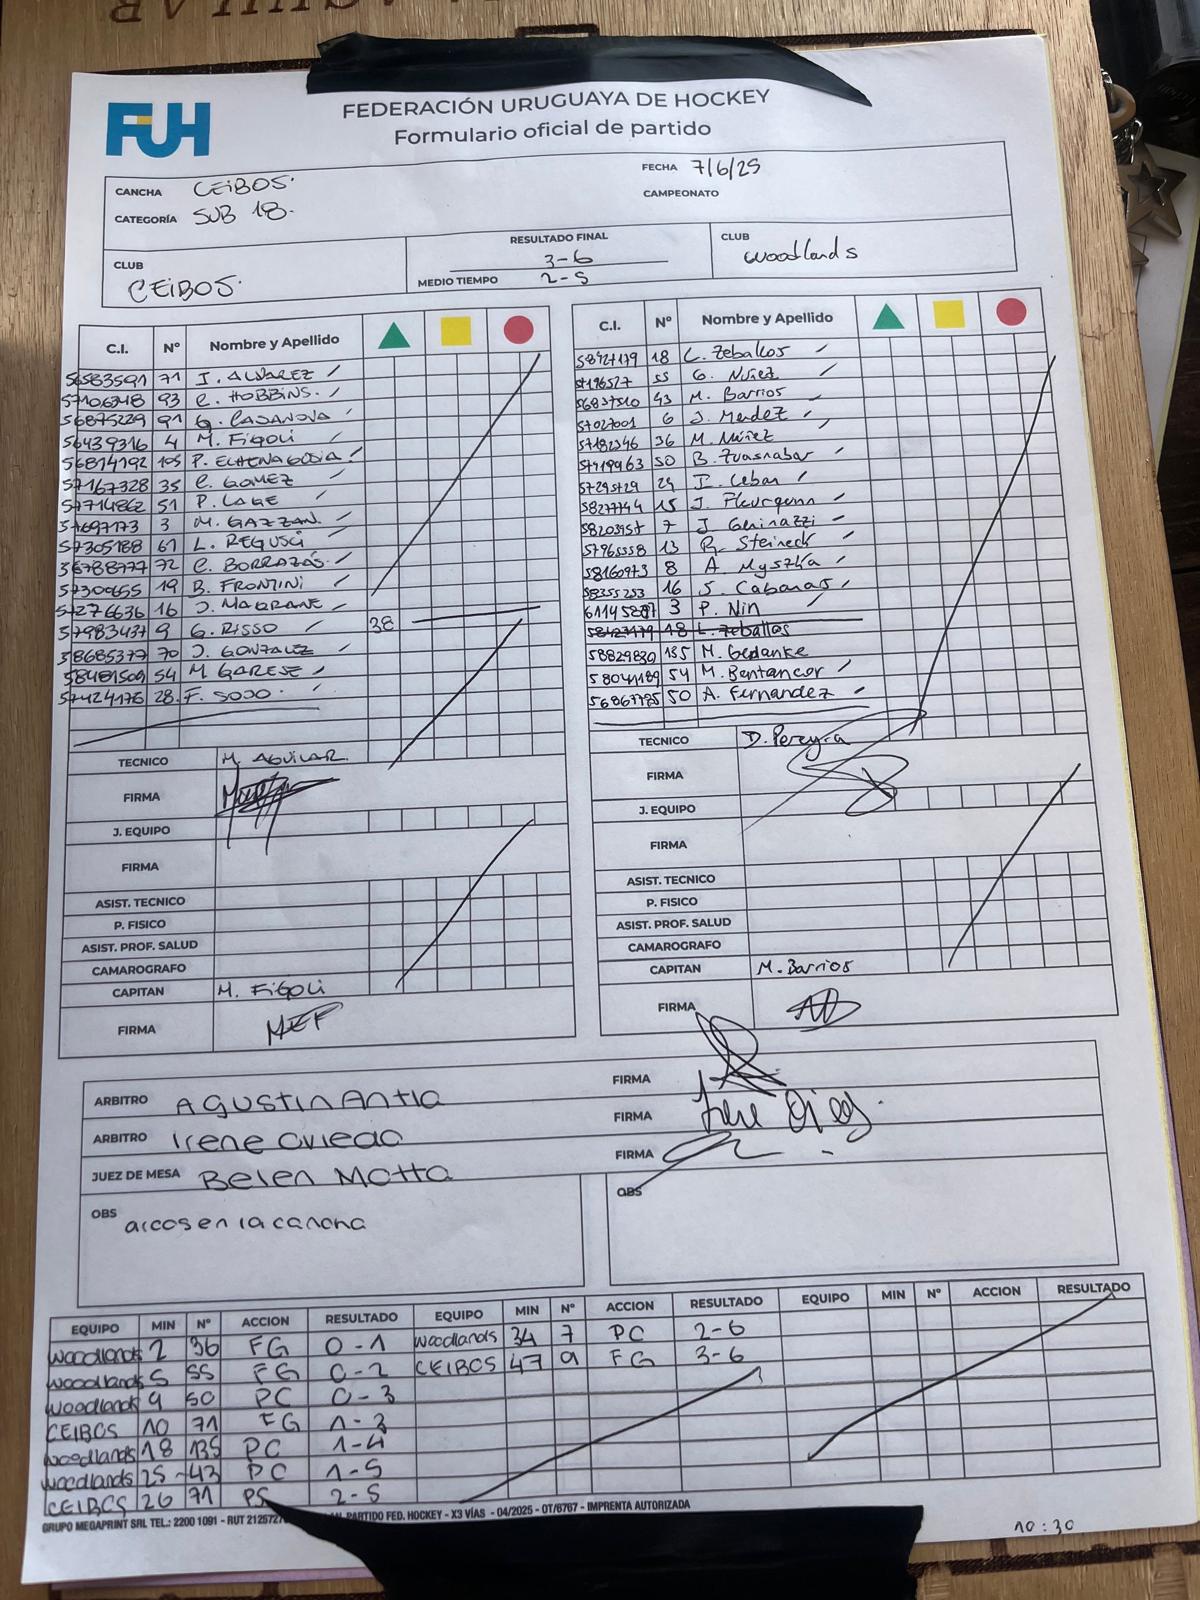 FUH
FEDERACIÓN URUGUAYA DE HOCKEY
Formulario oficial de partido
CANCHA CEIBOS.
FECHA 7/6/25
CATEGORÍA SUB 18.
CAMPEONATO
CLUB CEIBOS.
RESULTADO FINAL 3-6
MEDIO TIEMPO 2-5
CLUB Woodlands
C.I. Nº Nombre y Apellido
56583591 71 I. ALVAREZ
57106248 93 C. HOBBINS.
56875229 91 G. CASANOVA
56439316 4 M. FIGOLI
56814192 105 P. ECHENAGUSIA
57167328 35 C. GOMEZ
57714862 51 P. LAGE
57697173 3 M. GAZZAN.
57305188 61 L. REGUSCI
56788777 72 C. BORRAZÁS
57309655 19 B. FRONTINI
57276636 16 J. MAGRANE
57983437 9 G. RISSO 38
58685377 70 J. GONZALEZ
58481509 54 M GARESE
57424176 28. F. SOJO
TECNICO M. AGUILAR.
FIRMA
J. EQUIPO
FIRMA
ASIST. TECNICO
P. FISICO
ASIST. PROF. SALUD
CAMAROGRAFO
CAPITAN M. FIGOLI
FIRMA MEF
C.I. Nº Nombre y Apellido
58427179 18 L. Zeballos
55 G. Nuñez
56837510 43 M. Barrios
57027001 6 J. Mendez
57182346 36 M. Núñez
57419963 50 B. Fuasnabar
57295729 29 I. Ceban
58277744 15 J. Fleurquin
58203957 7 J. Geninazzi
57965558 13 R. Steineck
58160973 8 A. Myszka
58355253 16 S. Cabanas
61145287 3 P. Nin
58427179 18 L. Zeballos
58829830 135 M. Gedanke
58041189 54 M. Bentancor
56867725 50 A. Fernandez
TECNICO D. Pereyra
FIRMA
J. EQUIPO
FIRMA
ASIST. TECNICO
P. FISICO
ASIST. PROF. SALUD
CAMAROGRAFO
CAPITAN M. Barrios
FIRMA
ARBITRO Agustin Antia FIRMA
ARBITRO Irene Oviedo FIRMA
JUEZ DE MESA Belen Motta FIRMA
OBS arcos en la cancha
OBS
EQUIPO MIN Nº ACCION RESULTADO EQUIPO MIN Nº ACCION RESULTADO EQUIPO MIN Nº ACCION RESULTADO
Woodlands 2 36 FG 0-1 Woodlands 34 7 PC 2-6
Woodlands 5 55 FG 0-2 CEIBOS 47 9 FG 3-6
Woodlands 9 50 PC 0-3
CEIBOS 10 71 FG 1-3
Woodlands 18 135 PC 1-4
Woodlands 25 43 PC 1-5
CEIBOS 26 71 PS 2-5
GRUPO MEGAPRINT SRL TEL.: 2200 1091 - RUT PARTIDO FED. HOCKEY - X3 VÍAS - 04/2025 - OT/6767 - IMPRENTA AUTORIZADA
10:30